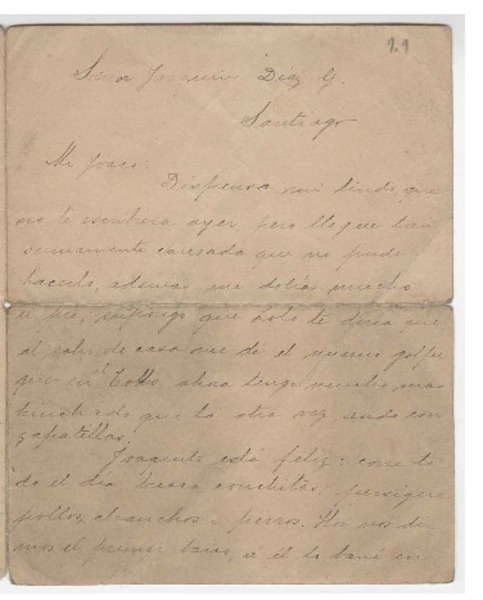 1.1
Señor Joaquin Díaz G.
Santiago
Mi Joaco:
Dispensa mi lindo que
no te escribiera ayer, pero llegue tan
sumamente cansada que no pude
hacerlo, ademas me dolía mucho
el pié; supongo que Lolo te diría que
al salir de casa me dí el mismo golpe
que en el ahora tengo mucho mas
hinchado que la otra vez, ando con
zapatillas.
Joaquinito está feliz: corre to
do el dia, busca conchitas, persigue
pollos, chanchos i perros. Hoi nos di
mos el primer baño, a él lo bañé en